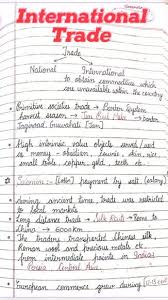 International
Trade
Trade
National International
to obtain commodities which
are unavailable within the country
Primitive societies trade → Barter System
harvest season → Jon Beel Mela → barter
Jagiroad, Guwahati (Jan)
High intrinsic value objects served/used
as money - obsidian, cowrie, skin, rice,
small tools, copper, gold, seeds etc.
payment by salt
during ancient time, Trade was restricted
to local markets
Long distance trade → Silk Route → Rome to
China → 6000 km
The traders transported Chinese silk
Roman wool and precious metals etc.
from intermediate points in India,
Persia Central Asia
European commerce grew during